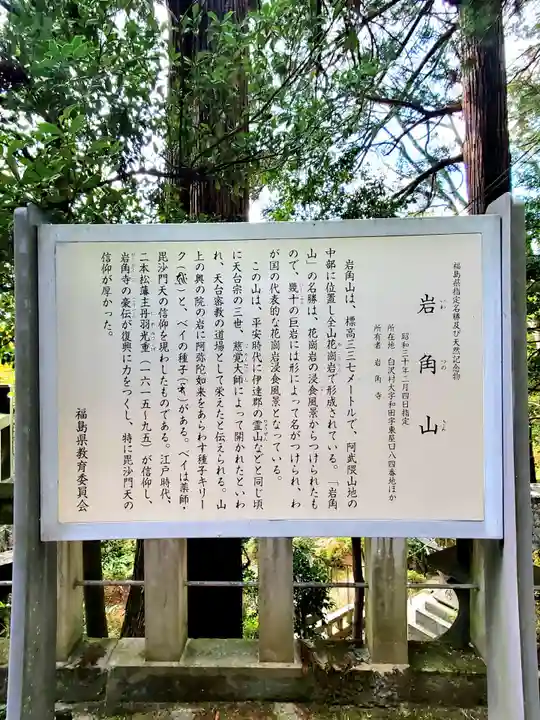 福島県指定名勝及び天然記念物
岩角山
いわ つの さん
昭和三十年二月四日指定
所在地 白沢村大字和田字東屋口八四番地ほか
所有者 岩角寺
岩角山は、標高三三七メートルで、阿武隈山地の
中部に位置し全山花崗岩で形成されている。「岩角
山」の名勝は、花崗岩の浸食風景からつけられたも
ので、幾十の巨岩には形によって名がつけられ、わ
が国の代表的な花崗岩浸食風景となっている。
この山は、平安時代に伊達郡の霊山などと同じ頃
に天台宗の三世、慈覚大師によって開かれたといわ
れ、天台密教の道場として栄えたと伝えられる。山
上の奥の院の岩に阿弥陀如来をあらわす種子キリー
ク()と、ベイの種子()がある。ベイは薬師・
毘沙門天の信仰を現わしたものである。江戸時代、
二本松藩主丹羽光重(一六一五〜九五)が信仰し、
岩角寺の豪伝が復興に力をつくし、特に毘沙門天の
信仰が厚かった。
福島県教育委員会